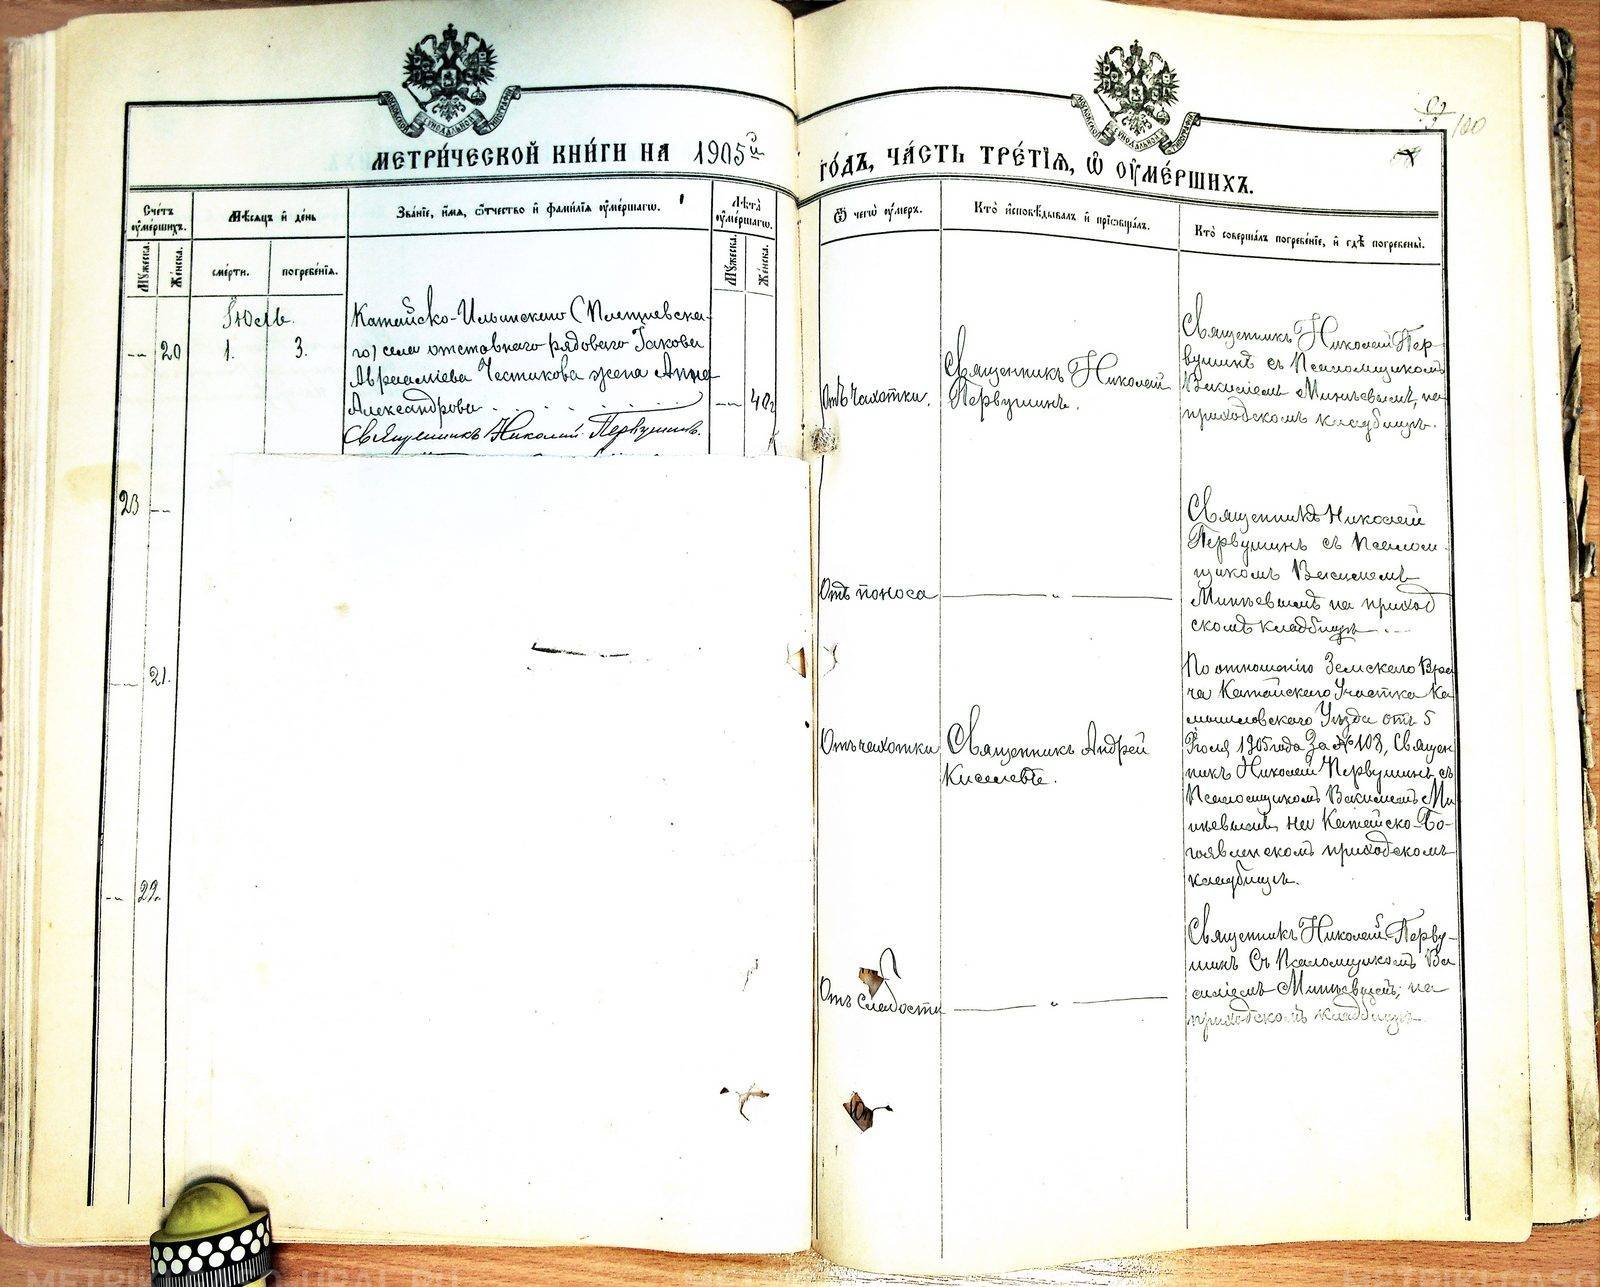 МЕТРИ́ЧЕСКОЙ КНИ́ГИ НА 1905й
ГО́ДЪ, ЧА́СТЬ ТРЕ́ТІЯ, Ѿ ОУМЕ́РШИХЪ.
100
Сче́тъ оуме́ршихъ.
Мѣ́сяцъ и де́нь
Зва́нїе, и́мя, ѻ́тчество и фами́лїя оуме́ршагѡ.
Лѣ́та оуме́ршагѡ.
Му́жеска.
Же́нска.
сме́рти.
погребе́нїя.
Му́жеска.
Же́нска.
Ѿ чегѡ̀ оу́меръ.
Кто̀ и́сповѣ́дывалъ и прїѡбща́лъ.
Кто̀ соверша́лъ погребе́нїе, и гдѣ̀ погребены̀.
Іюль.
-- 20 1. 3.
Катайско-Ильинскаго (Плетневска-
го) села отставного рядового Іакова
Авраамiева Честикова жена Анна
Александрова
-- 40
Священникъ Николай Первушинъ.
Отъ чахотки.
Священникъ Николай
Первушинъ.
Священникъ Николай Пер-
вушинъ съ Псаломщикомъ
Василіемъ Минѣевымъ, на
приходскомъ кладбищѣ.
23 --
Отъ поноса
— „ —
Священникъ Николай
Первушинъ съ Псалом-
щикомъ Василіемъ
Минѣевымъ на приход
скомъ кладбищѣ
-- 21.
Отъ чахотки
Священникъ Андрей
Киселевъ.
По отношенію Земскаго Вра
ча Катайскаго Участка Ка
мышловскаго Уѣзда отъ 5
Іюля 1905 года за № 108, Священ
никъ Николай Первушинъ съ
Псаломщикомъ Василіемъ Ми
нѣевымъ, на Катайско-Бо-
гоявленскомъ приходскомъ
кладбищѣ.
-- 22.
Отъ слабости
— „ —
Священникъ Николай Перву-
шинъ съ Псаломщикомъ Ва
силіемъ Минѣевымъ, на
приходскомъ кладбищѣ